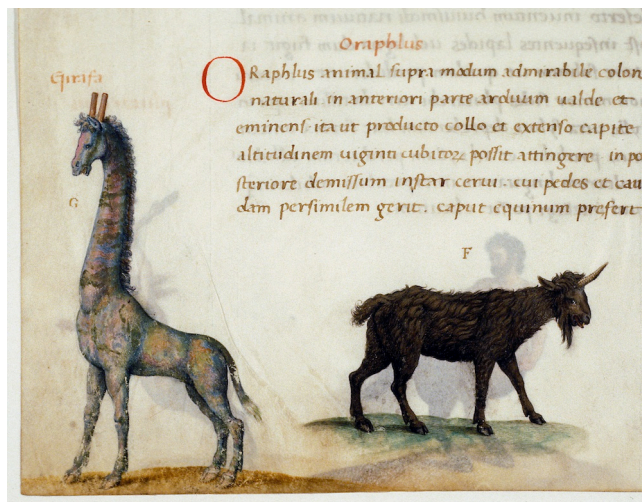 Oraphlus
Girafa
ORaphlus animal supra modum admirabile colon
naturali in anteriori parte arduum ualde et
eminens. ita ut producto collo et extenso capite
altitudinem uiginti cubitoꝝ possit attingere in po
steriore demissum instar cerui. cui pedes et cau
dam persimilem gerit. caput equinum prefert
G
F